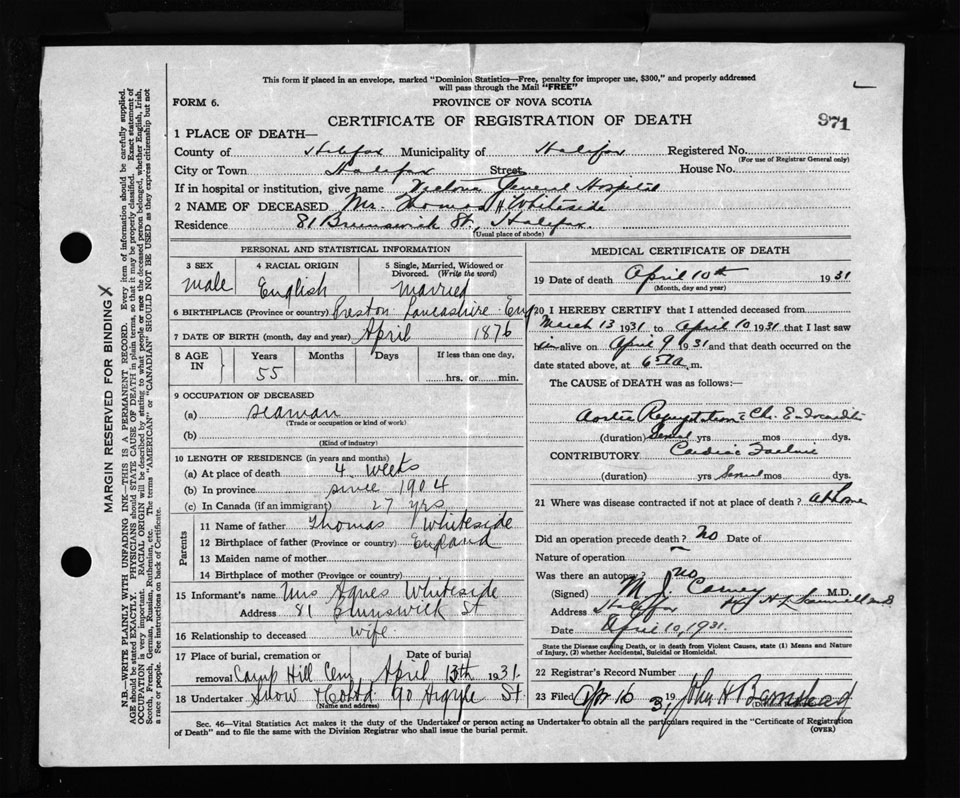 This form if placed in an envelope, marked "Dominion Statistics—Free, penalty for improper use, $300," and properly addressed
will pass through the Mail "FREE"
FORM 6. PROVINCE OF NOVA SCOTIA
CERTIFICATE OF REGISTRATION OF DEATH
971
1 PLACE OF DEATH—
County of Halifax Municipality of Halifax Registered No.
(For use of Registrar General only)
City or Town Halifax Street House No.
If in hospital or institution, give name Victoria General Hospital
2 NAME OF DECEASED Mr. Thomas H Whiteside
Residence 81 Brunswick St., Halifax.
(Usual place of abode)
PERSONAL AND STATISTICAL INFORMATION
3 SEX 4 RACIAL ORIGIN 5 Single, Married, Widowed or
Divorced. (Write the word)
male English Married
6 BIRTHPLACE (Province or country) Preston Lancashire Eng
7 DATE OF BIRTH (month, day and year) April 1876
8 AGE IN Years Months Days If less than one day,
55 hrs. or min.
9 OCCUPATION OF DECEASED
(a) seaman
(Trade or occupation or kind of work)
(b)
(Kind of industry)
10 LENGTH OF RESIDENCE (in years and months)
(a) At place of death 4 weeks
(b) In province since 1904
(c) In Canada (if an immigrant) 27 yrs
Parents
11 Name of father Thomas Whiteside
12 Birthplace of father (Province or country) England
13 Maiden name of mother
14 Birthplace of mother (Province or country)
15 Informant's name Mrs Agnes Whiteside
Address 81 Brunswick St
16 Relationship to deceased wife
17 Place of burial, cremation or Date of burial
removal Camp Hill Cem April 13th 1931
18 Undertaker Snow & Co Ltd 90 Argyle St
(Name and address)
MEDICAL CERTIFICATE OF DEATH
19 Date of death April 10th 1931
(Month, day and year)
20 I HEREBY CERTIFY that I attended deceased from
March 13 1931 to April 10 1931 that I last saw
him alive on April 9 1931 and that death occurred on the
date stated above, at m.
The CAUSE of DEATH was as follows:—
Aortic Regurgitation Ch. Endocarditis
(duration) yrs mos dys.
CONTRIBUTORY Cardiac Failure
(duration) yrs mos dys.
21 Where was disease contracted if not at place of death? at home
Did an operation precede death? No Date of
Nature of operation
Was there an autopsy? no
(Signed) M.D.
Address Halifax
Date April 10, 1931.
State the Disease causing Death, or in death from Violent Causes, state (1) Means and
Nature of Injury, (2) whether Accidental, Suicidal or Homicidal.
22 Registrar's Record Number
23 Filed Apr 16 1931 John H Barnstead
Sec. 46—Vital Statistics Act makes it the duty of the Undertaker or person acting as Undertaker to obtain all the particulars required in the "Certificate of Registration
of Death" and to file the same with the Division Registrar who shall issue the burial permit.
(OVER)
MARGIN RESERVED FOR BINDING
N.B.—WRITE PLAINLY WITH UNFADING INK—THIS IS A PERMANENT RECORD. Every item of information should be carefully supplied.
AGE should be stated EXACTLY. PHYSICIANS should STATE CAUSE OF DEATH in plain terms, so that it may be properly classified. Exact statement of
OCCUPATION is very important. RACIAL ORIGIN will be described by stating to what people or race the deceased person belonged, whether English, Irish,
Scotch, French, German, Russian, Ruthenian, etc. The terms "AMERICAN" or "CANADIAN" SHOULD NOT BE USED as they express citizenship but not
a race or people. See instructions on back of Certificate.